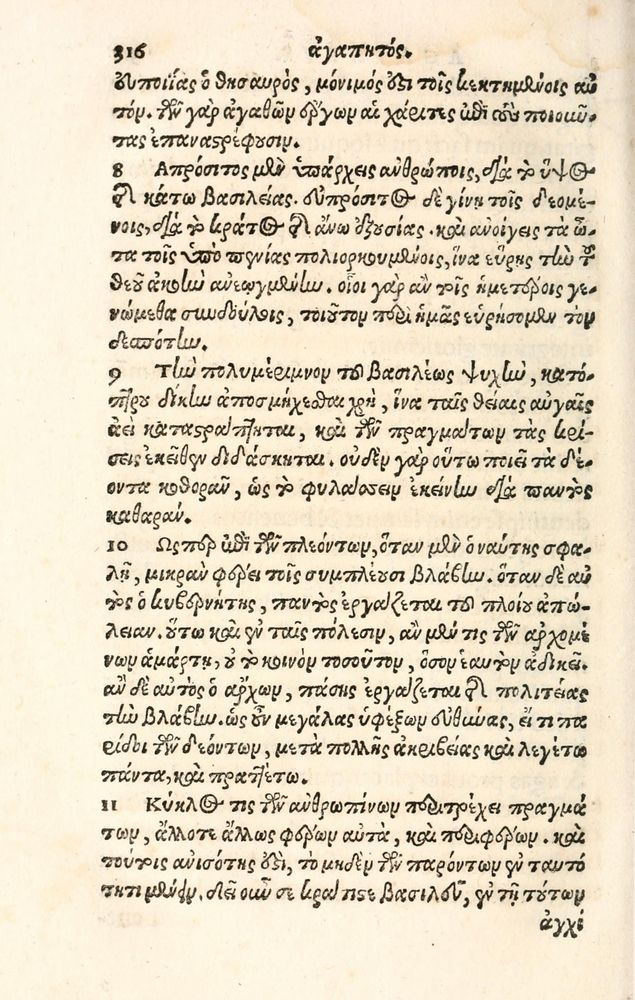 316 ἀγαπητός.
εὐποιΐας ὁ θησαυρὸς, μόνιμός ἐστι τοῖς κεκτημένοις αὐ
τόν. τῶν γὰρ ἀγαθῶν ἔργων αἱ χάριτες ἐπὶ τοὺς ποιοῦν-
τας ἐπαναστρέφουσιν.
8 Ἀπρόσιτος μὲν ὑπάρχεις ἀνθρώποις, διὰ τὸ ὕψος
τῆς κάτω βασιλείας. εὐπρόσιτος δὲ γίνῃ τοῖς δεομέ-
νοις, διὰ τὸ κράτος τῆς ἄνω ἐξουσίας. καὶ ἀνοίγεις τὰ ὦ-
τα τοῖς ὑπὸ πενίας πολιορκουμένοις, ἵνα εὕρῃς τὴν τοῦ
θεοῦ ἀκοὴν ἀνεῳγμένην. οἷοι γὰρ ἂν τοῖς ἡμετέροις γε-
νώμεθα συνδούλοις, τοιοῦτον περὶ ἡμᾶς εὑρήσομεν τὸν
δεσπότην.
9 Τὴν πολυμέριμνον τοῦ βασιλέως ψυχὴν, κατό-
πτρου δίκην ἀποσμήχεσθαι χρὴ, ἵνα ταῖς θείαις αὐγαῖς
ἀεὶ καταστράπτηται, καὶ τῶν πραγμάτων τὰς κρί-
σεις ἐκεῖθεν διδάσκηται. οὐδὲν γὰρ οὕτω ποιεῖ τὰ δέ-
οντα καθορᾶν, ὡς τὸ φυλάσσειν ἐκείνην διὰ παντὸς
καθαράν.
10 Ὥσπερ ἐπὶ τῶν πλεόντων, ὅταν μὲν ὁ ναύτης σφα-
λῇ, μικρὰν φέρει τοῖς συμπλέουσι βλάβην. ὅταν δὲ αὐ
τὸς ὁ κυβερνήτης, παντὸς ἐργάζεται τοῦ πλοίου ἀπώ-
λειαν. οὕτω καὶ ἐν ταῖς πόλεσιν, ἂν μέν τις τῶν ἀρχομέ
νων ἁμάρτῃ, οὐ τὸ κοινὸν τοσοῦτον, ὅσον ἑαυτὸν ἀδικεῖ.
ἂν δὲ αὐτὸς ὁ ἄρχων, πάσης ἐργάζεται τῆς πολιτείας
τὴν βλάβην. ὡς οὖν μεγάλας ὑφέξων εὐθύνας, εἴ τι πα
ρίδοι τῶν δεόντων, μετὰ πολλῆς ἀκριβείας καὶ λεγέτω
πάντα, καὶ πραττέτω.
11 Κύκλος τις τῶν ἀνθρωπίνων περιτρέχει πραγμά
των, ἄλλοτε ἄλλως φέρων αὐτὰ, καὶ περιφέρων. καὶ
τούτοις ἀνισότης ἐστὶ, τὸ μηδὲν τῶν παρόντων ἐν ταυτό
τητι μένειν. δεῖ οὖν σε κράτιστε βασιλεῦ, ἐν τῇ τούτων
ἀγχί